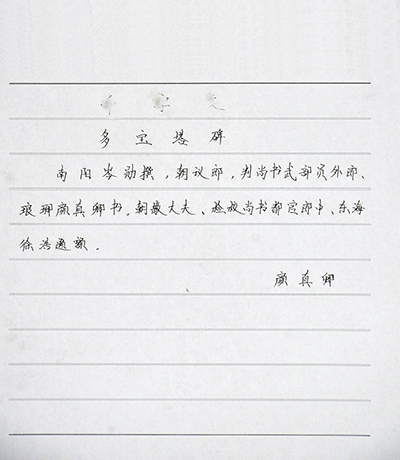 多宝塔碑
南阳岑勋撰，朝议郎，判尚书武部员外郎、
琅琊颜真卿书。朝散大夫、检校尚书都官郎中、东海
徐浩题额。
颜真卿